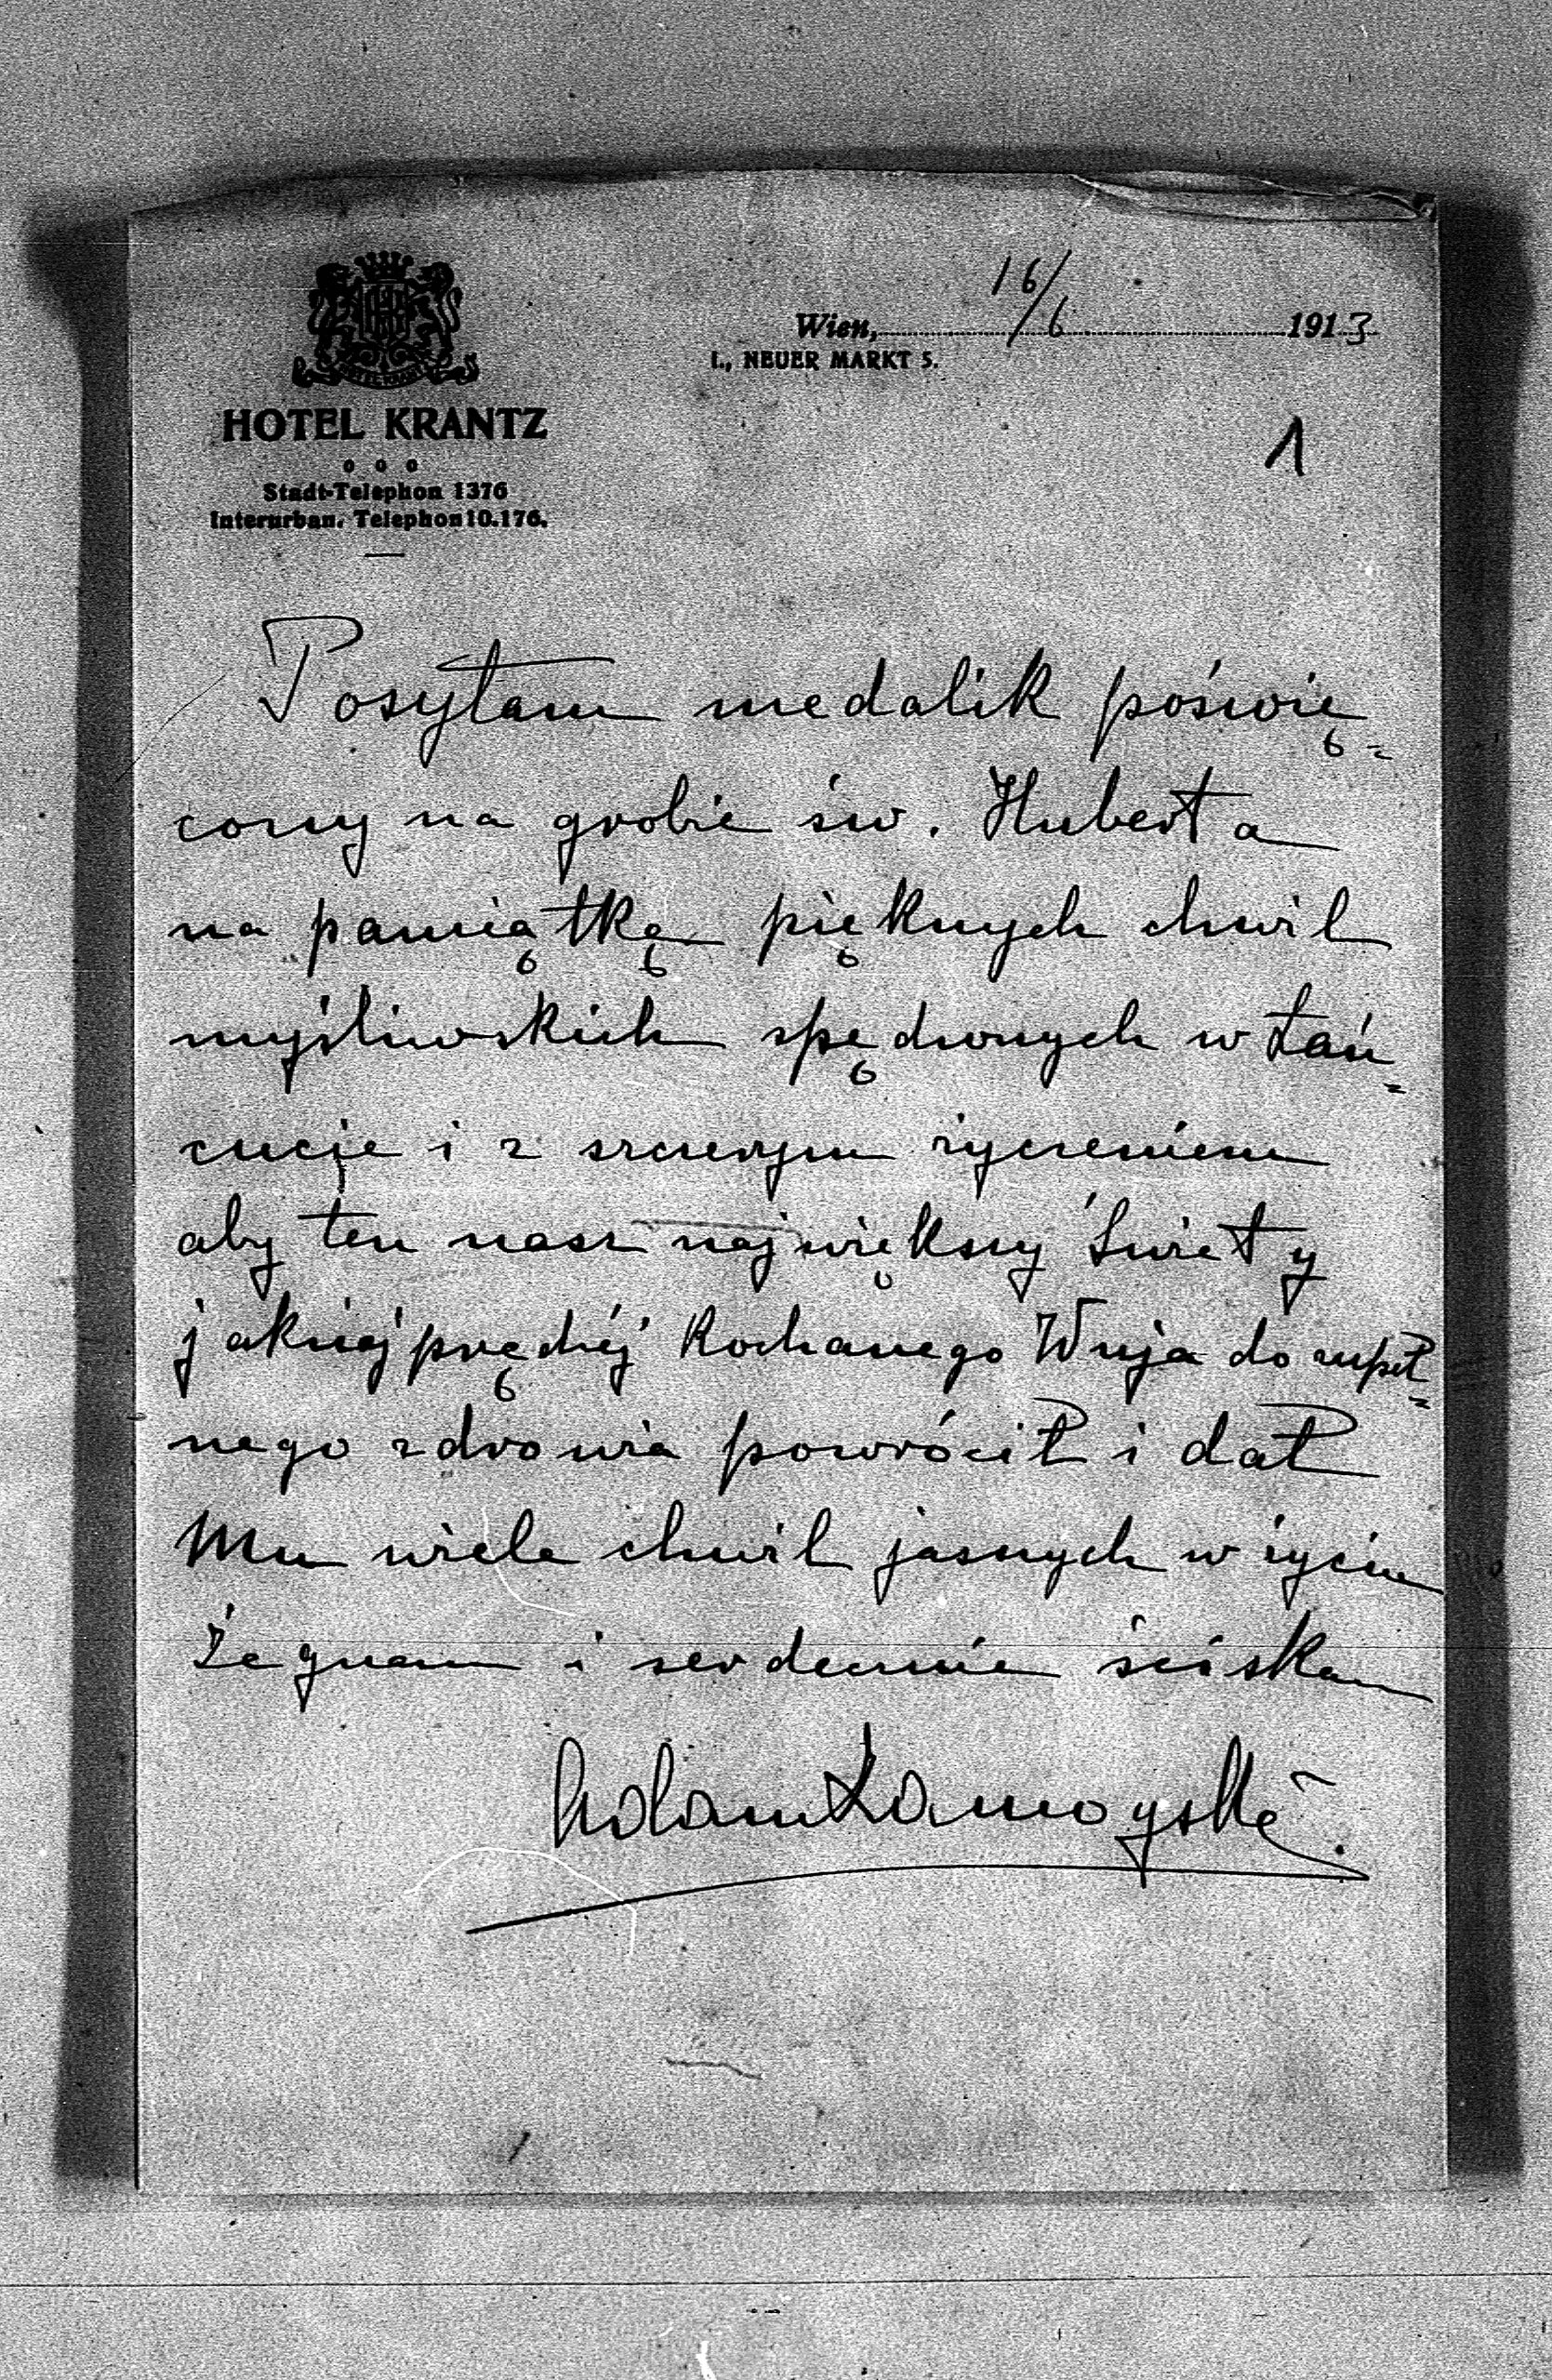 16/6
Wien, 1913
I., NEUER MARKT 5.
HOTEL KRANTZ
o o o
Stadt-Telephon 1376
Interurban. Telephon 10.176.
1
Posyłam medalik poświę=
cony na grobie św. Huberta
na pamiątkę pięknych chwil
myśliwskich spędzonych w Łań=
cucie i z szczerym życzeniem
aby ten nasz największy Święty
jaknajprędzéj Kochanego Wuja do zupeł=
nego zdrowia powrócił i dał
Mu wiele chwil jasnych w życiu
Żegnam i serdecznie ściskam
Zamoyski.